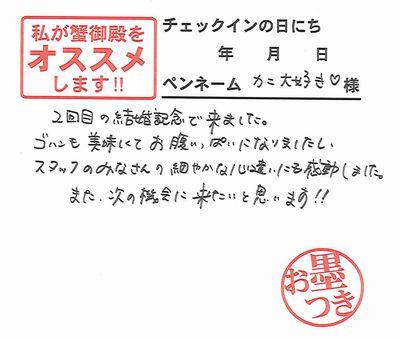 私が蟹御殿を
オススメ
します!!
チェックインの日にち
年 月 日
ペンネーム カニ大好き♡様
2回目の結婚記念で来ました。
ゴハンも美味しくてお腹いっぱいになりましたし
スタッフのみなさんの細やかな心遣いにも感動しました。
また、次の機会に来たいと思います!!
お墨つき